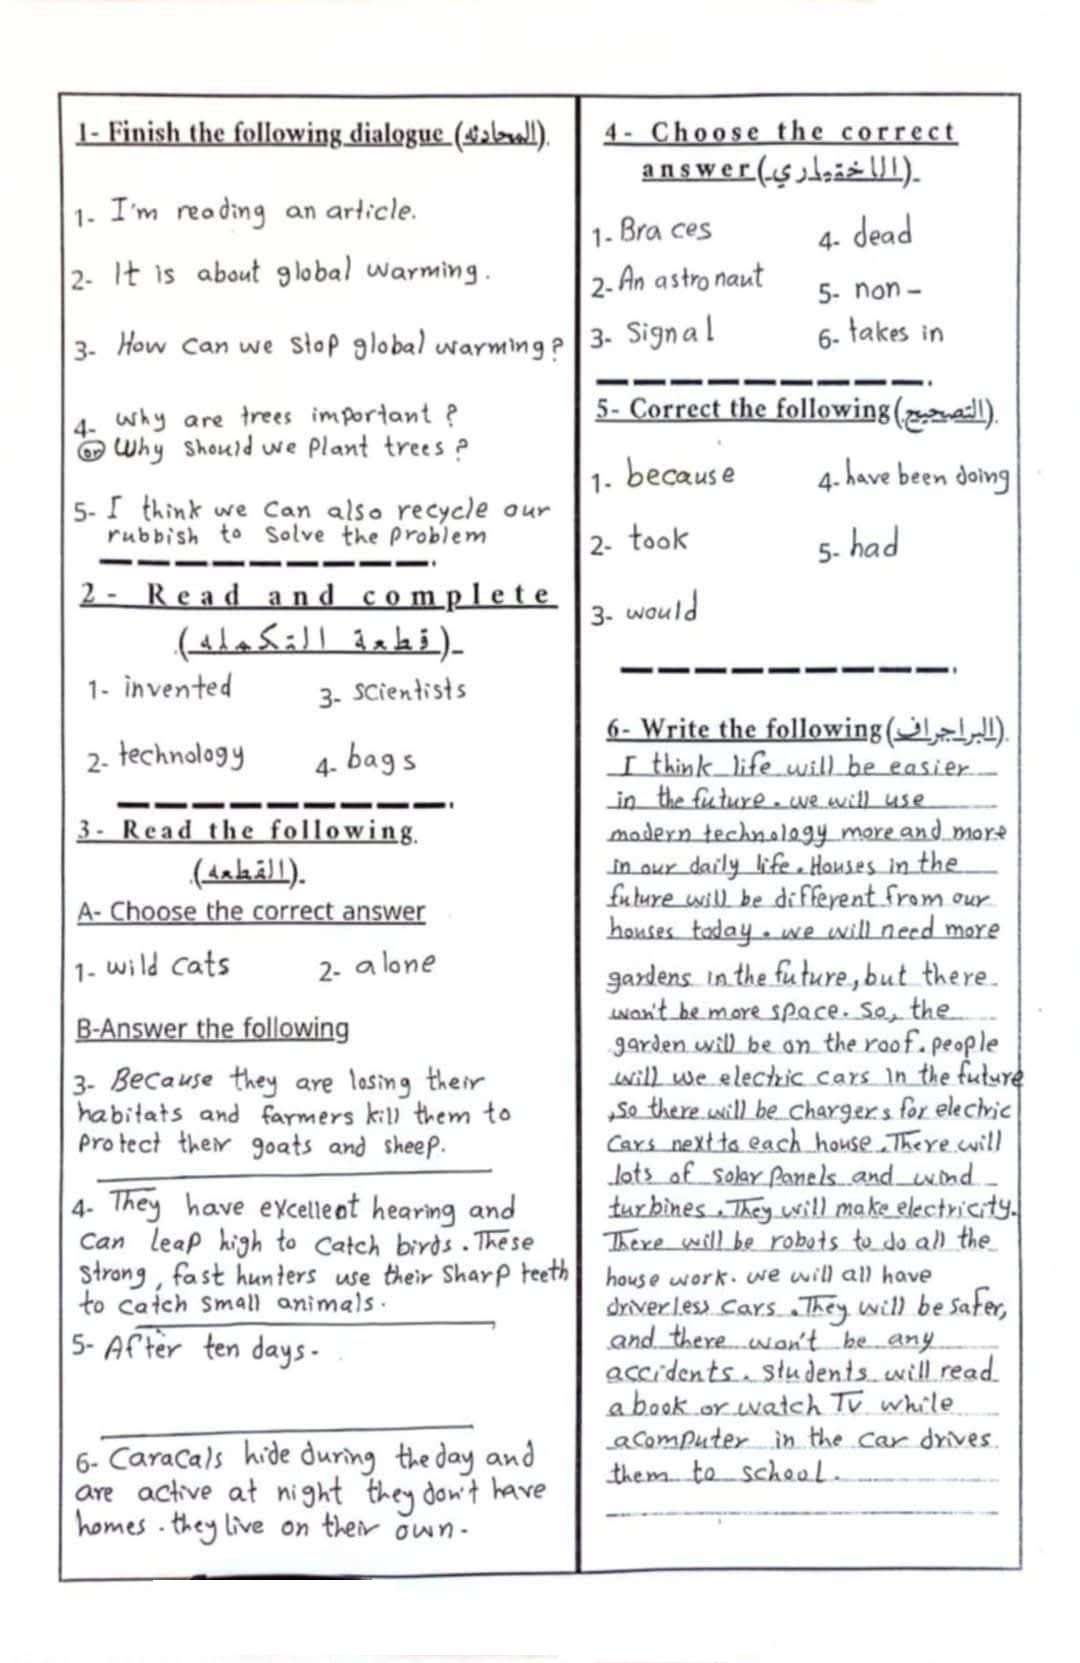 1- Finish the following dialogue (المحادثة).
1- I'm reading an article.
2- It is about global warming.
3- How can we stop global warming?
4- why are trees important?
or Why should we plant trees?
5- I think we can also recycle our
rubbish to solve the problem
2- Read and complete
(قطعة التكملة).
1- invented
3- scientists
2- technology
4- bags
3- Read the following.
(القطعة).
A- Choose the correct answer
1- wild cats
2- alone
B-Answer the following
3- Because they are losing their
habitats and farmers kill them to
protect their goats and sheep.
4- They have excellent hearing and
can leap high to catch birds. These
strong, fast hunters use their sharp teeth
to catch small animals.
5- After ten days.
6- Caracals hide during the day and
are active at night they don't have
homes. they live on their own.
4- Choose the correct
answer (الاختياري).
1- Braces
4- dead
2- An astronaut
5- non-
3- Signal
6- takes in
5- Correct the following (التصحيح).
1- because
4- have been doing
2- took
5- had
3- would
6- Write the following (البراجراف).
I think life will be easier
in the future. we will use
modern technology more and more
in our daily life. Houses in the
future will be different from our
houses today. we will need more
gardens in the future, but there
won't be more space. So, the
garden will be on the roof. people
will use electric cars in the future
,so there will be chargers for electric
cars next to each house. There will
lots of solar panels and wind
turbines. They will make electricity.
There will be robots to do all the
house work. we will all have
driverless cars. They will be safer,
and there won't be any
accidents. students will read
a book or watch TV while
a computer in the car drives
them to school.